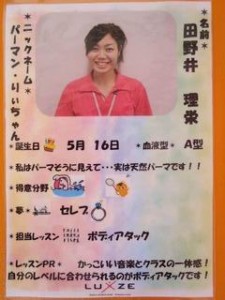 ＊名前＊
田野井 理栄
＊ニックネーム＊
パーマン・りぃちゃん
＊誕生日 5月16日 ＊血液型＊ A型
＊私はパーマそうに見えて・・・実は天然パーマです！！
＊得意分野
＊夢＊ セレブ
＊担当レッスン ボディアタック
＊レッスンPR＊ かっこいい音楽とクラスの一体感！
自分のレベルに合わせられるのがボディアタックです！
LUXZE